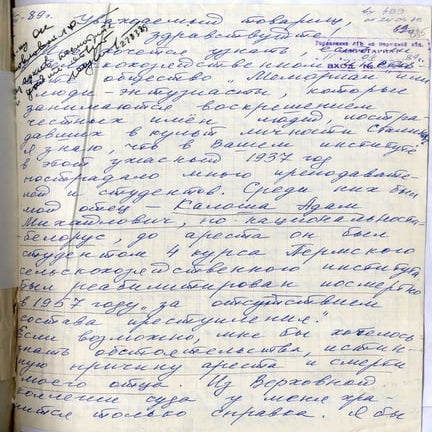 5-89г.
Уважаемый товарищ,
здравствуйте.
узнать, есть
сельскохозяйственном
общество "Мемориал" или
люди - энтузиасты, которые
занимаются воскрешением
честных имён людей, постра-
давших в культ личности Сталина.
Я знаю, что в Вашем институте
в этот ужасный 1937 год
пострадало много преподавате-
лей и студентов. Среди них был
мой отец - Калоша Адам
Михайлович, по национальности
белорус, до ареста он был
студентом 4 курса Пермского
сельскохозяйственного института,
был реабилитирован посмертно
в 1957 году "за отсутствием
состава преступления."
Если возможно, мне бы хотелось
знать обстоятельства, истин-
ную причину ареста и смерти
моего отца. Из Верховной
коллегии суда у меня хра-
нится только справка. Я бы